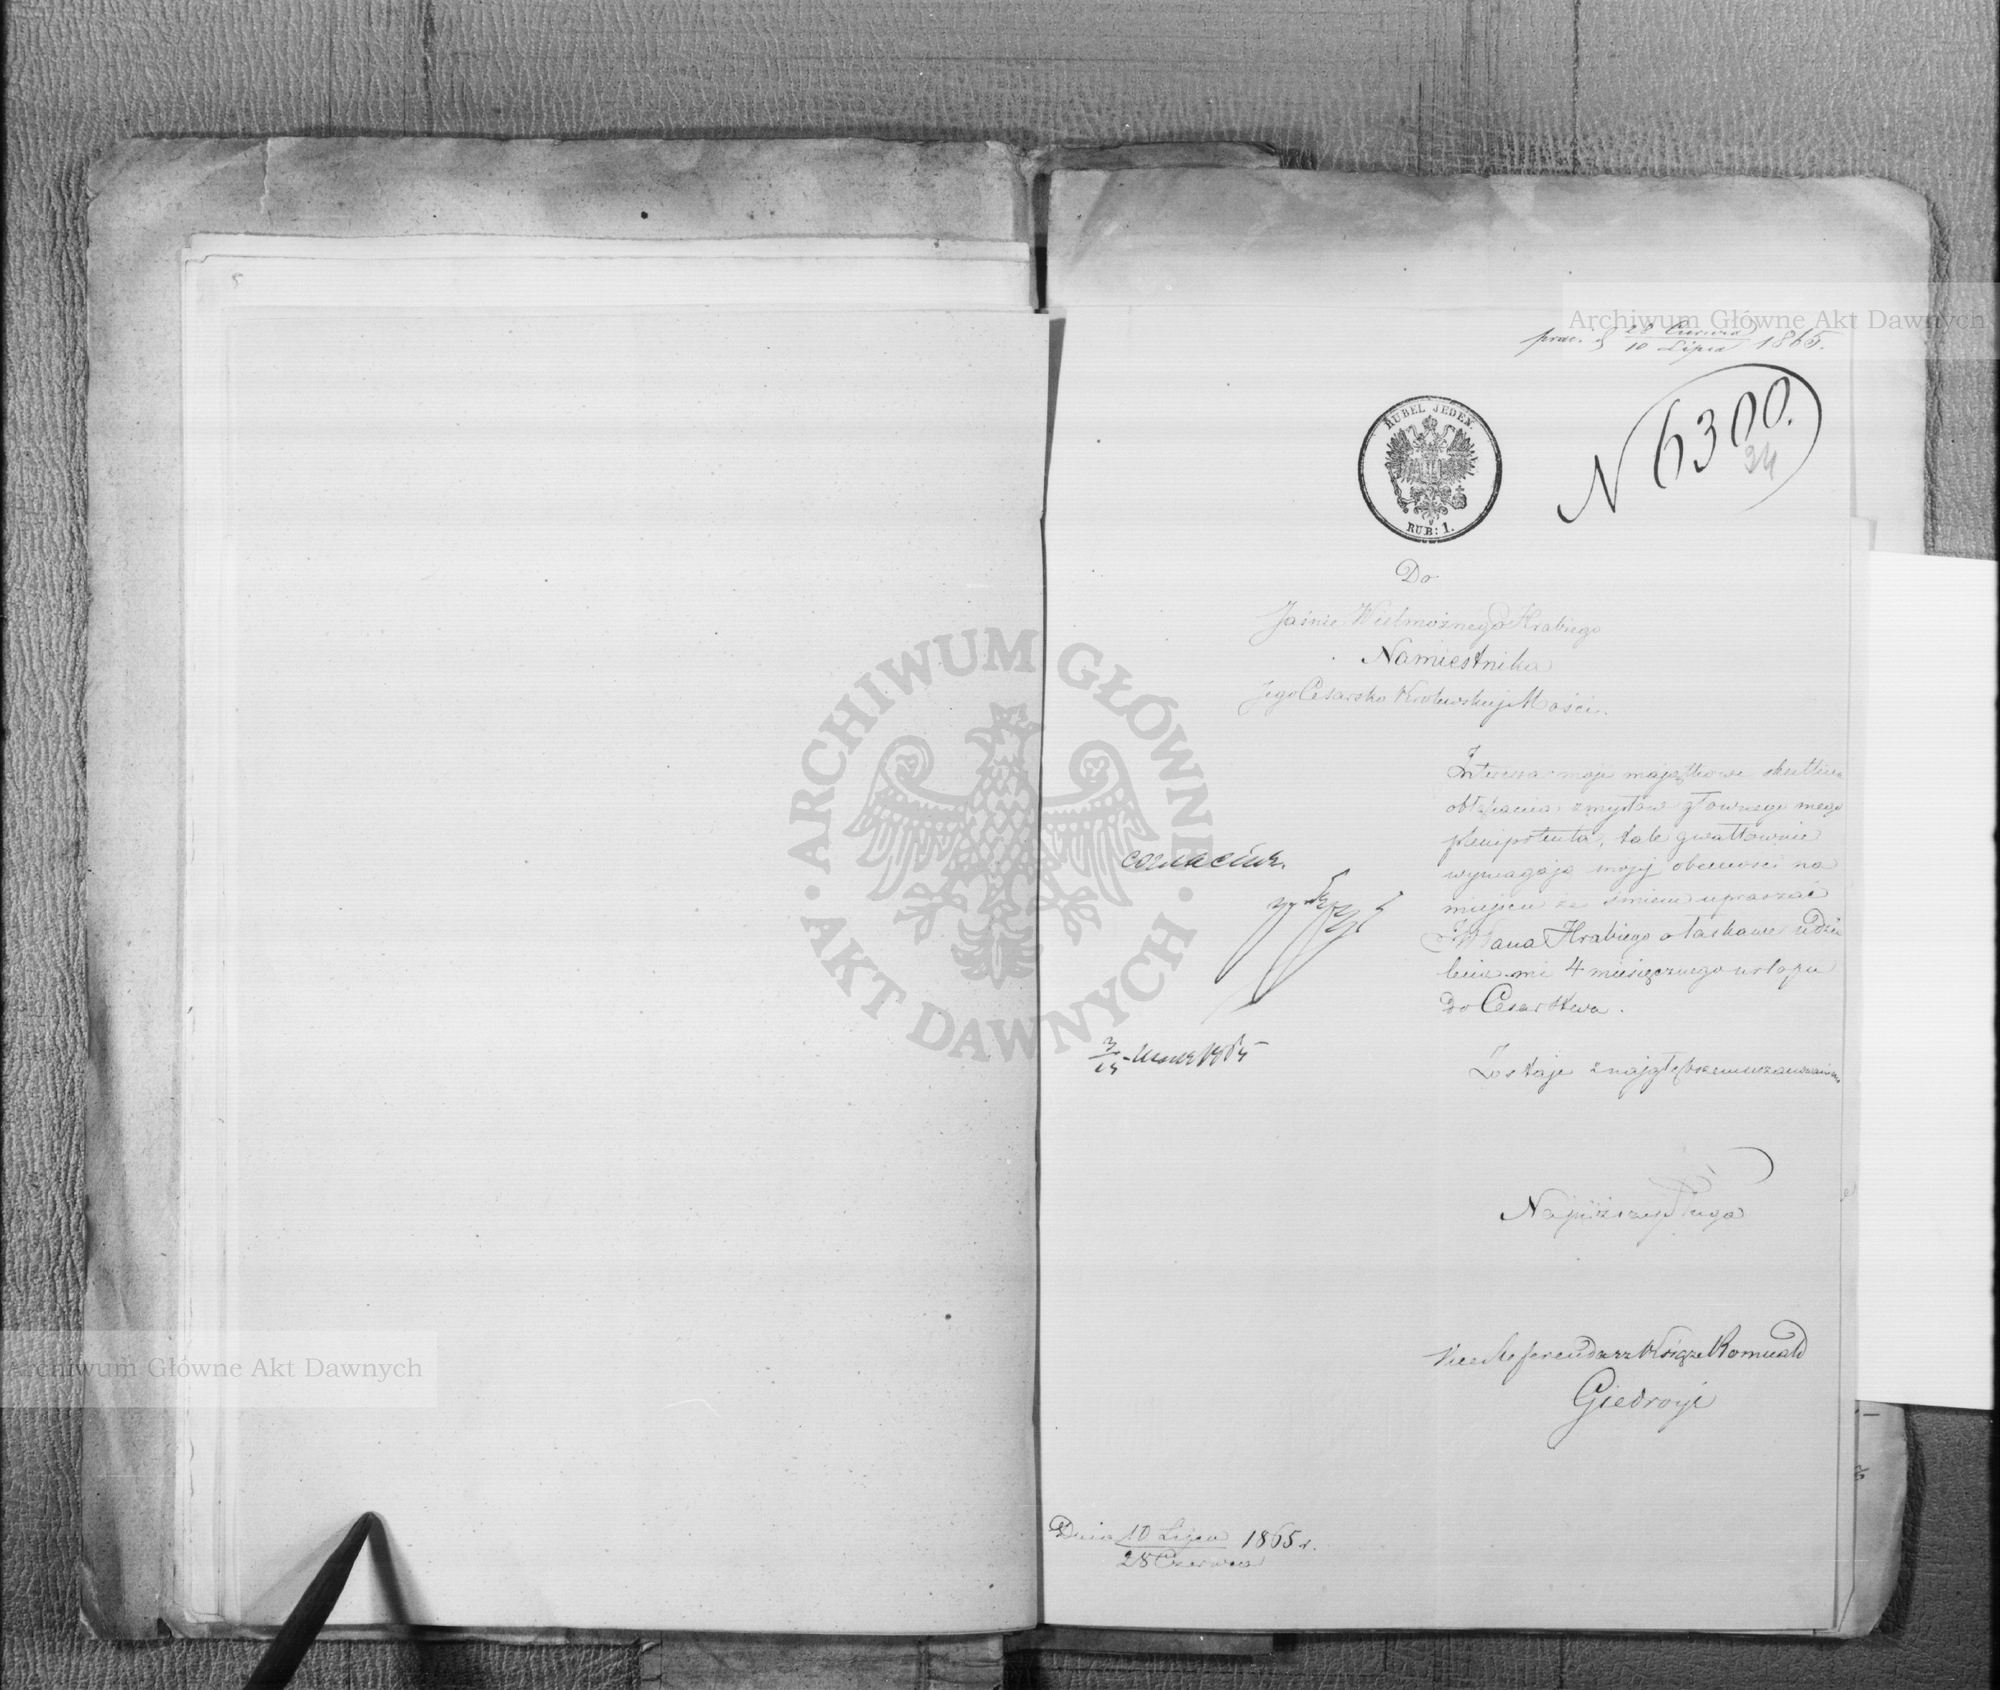 prez. d 28 Czerwca / 10 Lipca 1865.
N 6300.
34
RUBEL JEDEN.
RUB: 1.
Do
Jaśnie Wielmożnego Hrabiego
Namiestnika
Jego Cesarsko Królewskiej Mości.
Interessa moje majątkowe skutkiem
obłąkania zmysłów głównego mego
plenipotenta, tak gwałtownie
wymagają mojej obecności na
miejscu że śmiem upraszać
JWPana Hrabiego o łaskawe udzie
lenie mi 4 miesięcznego urlopu
do Cesarstwa.
Zostaję z najgłębszem uszanowaniem
Najniższy Sługa
Vice Referendarz Książe Romuald
Giedroyć
согласенъ.
3/15 1865
Dnia 10 Lipca / 28 Czerwca 1865 r.
Archiwum Główne Akt Dawnych
ARCHIWUM GŁÓWNE AKT DAWNYCH
Archiwum Główne Akt Dawnych